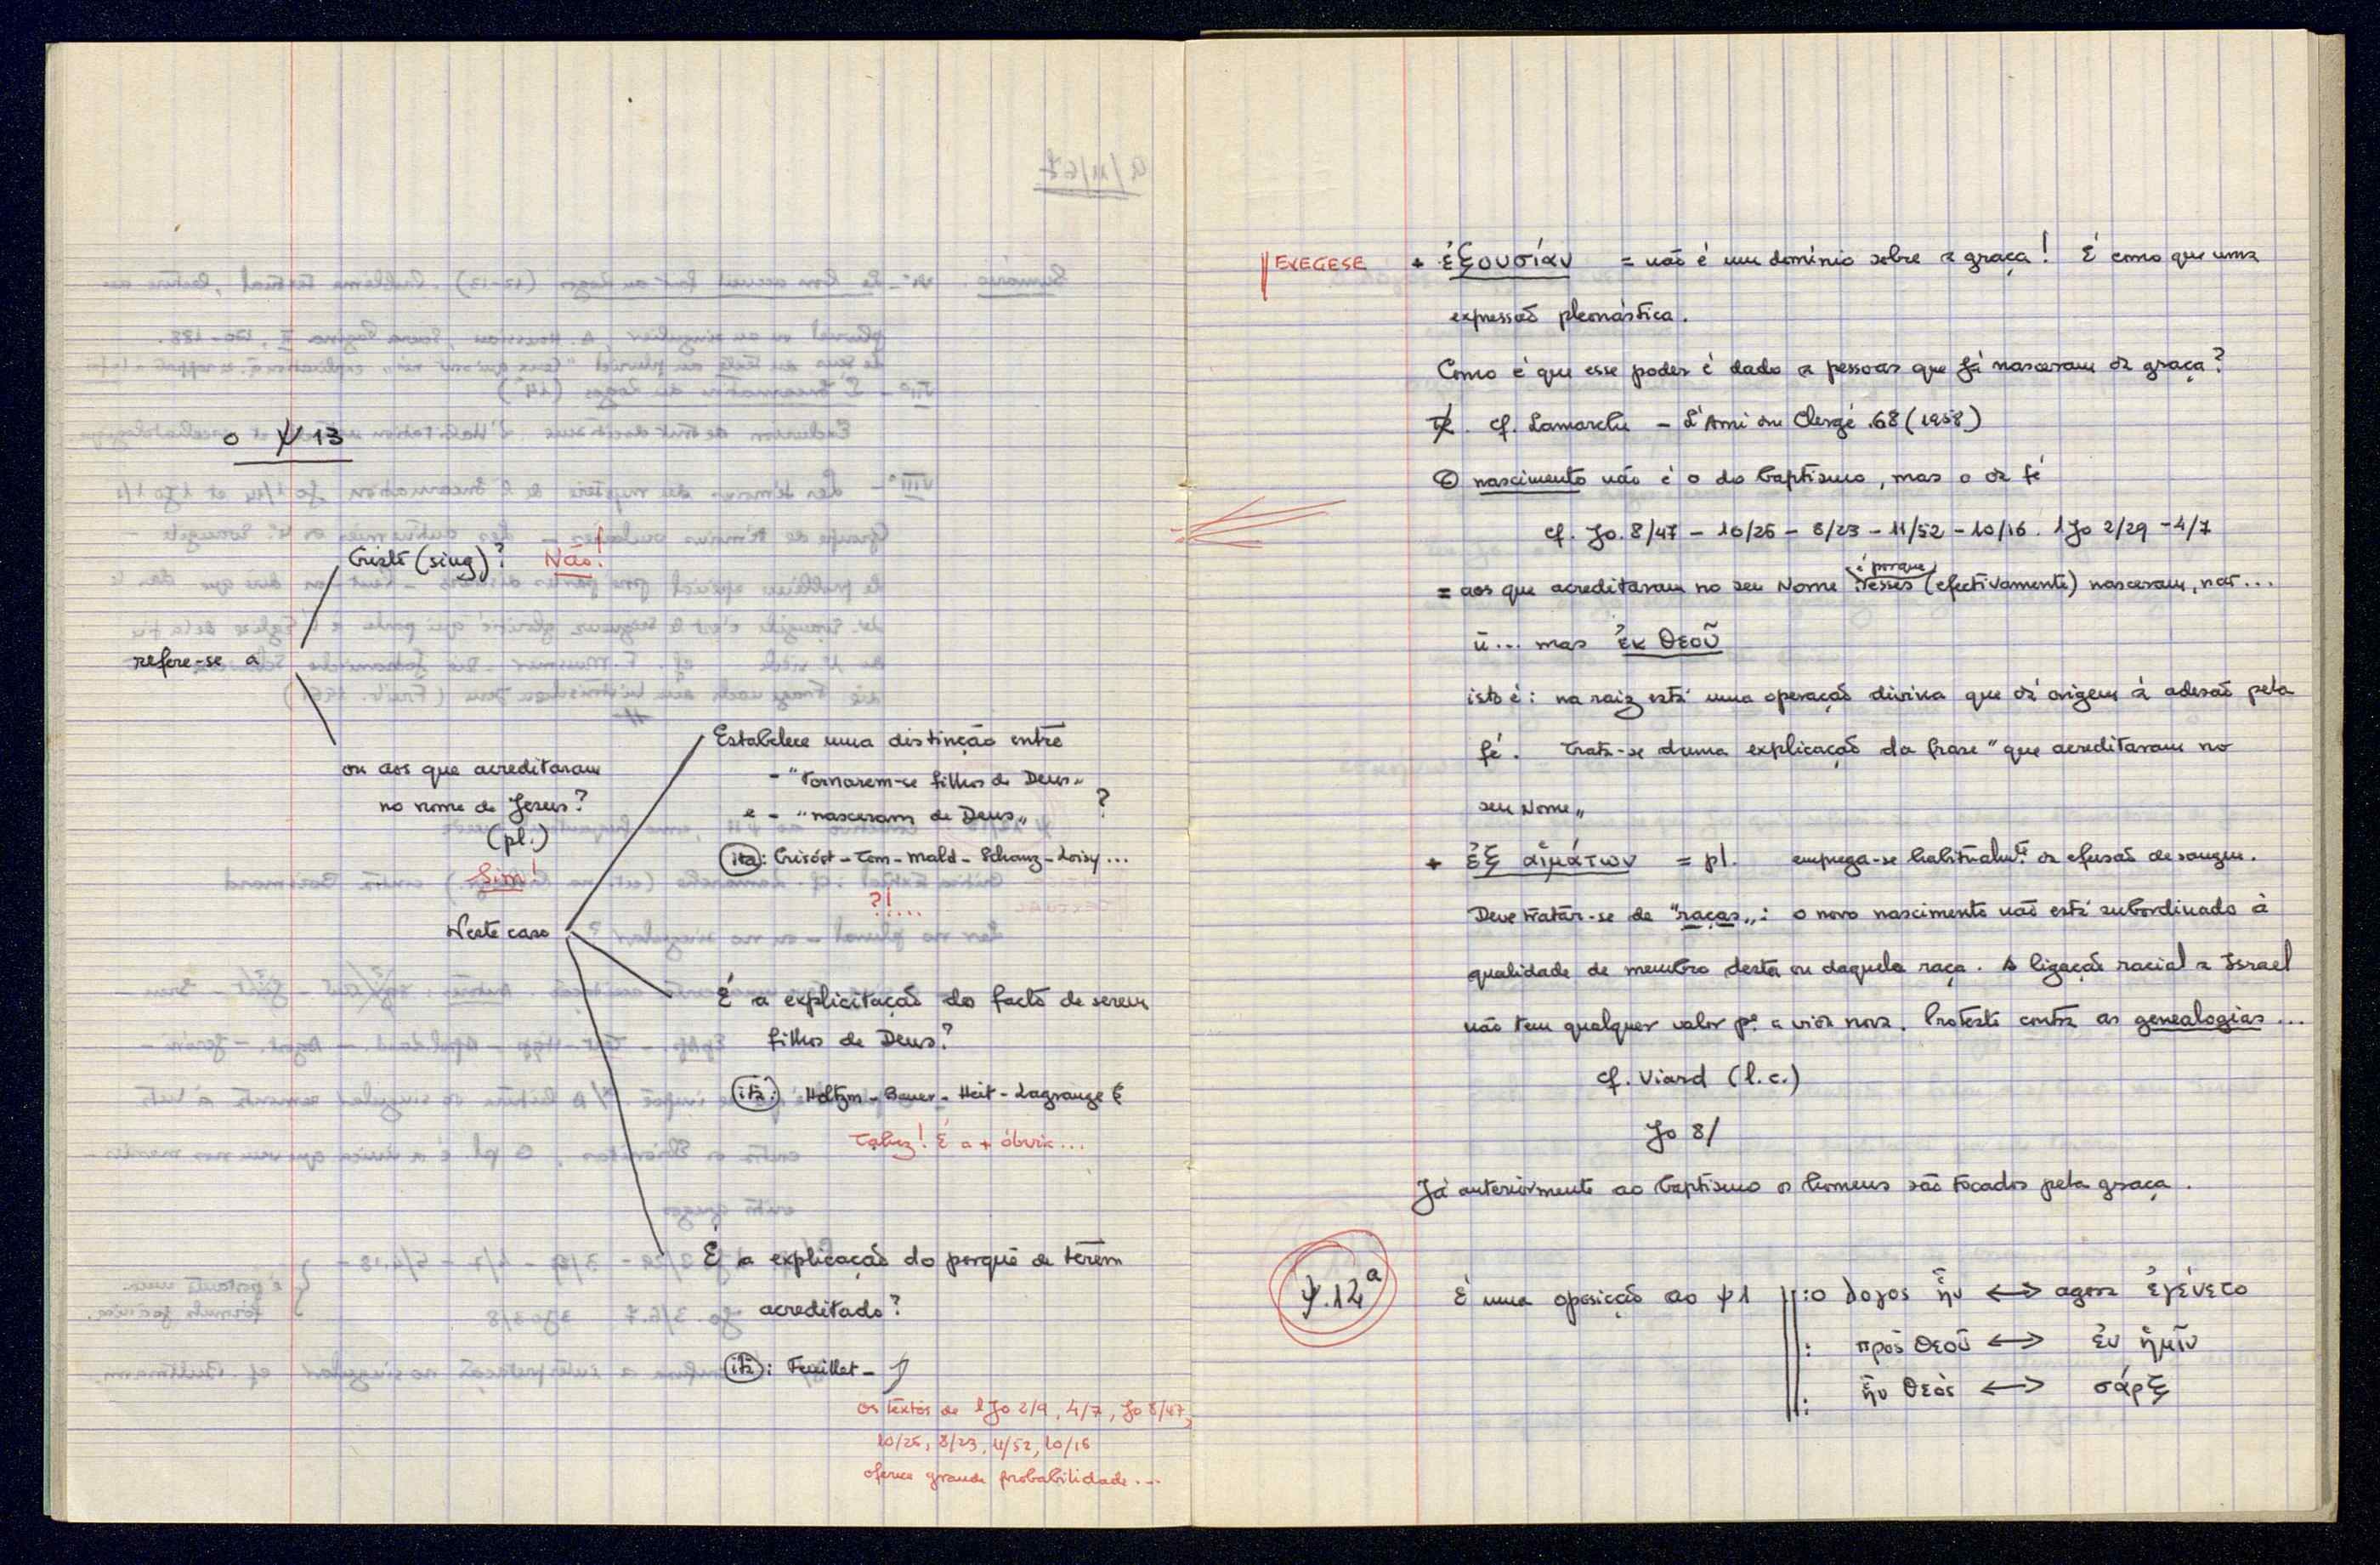 o ψ 13
refere-se a
Cristo (sing)? Não!
ou aos que acreditaram
no nome de Jesus?
(pl.)
Sim!
Neste caso
Estabelece uma distinção entre
- "tornarem-se filhos de Deus"
e - "nasceram de Deus" ?
(ita): Crisóst - Tom - Mald - Schanz - Loisy ...
?!...
É a explicitação do facto de serem
filhos de Deus?
(ita): Holtzm - Bauer - Heit - Lagrange
Talvez! É a + óbvia...
É a explicação do porquê de terem
acreditado?
(ita): Feuillet -
os textos de 1 Jo 2/9, 4/7, Jo 8/47,
10/26, 8/23, 11/52, 10/16
oferece grande probabilidade...
EXEGESE + ἐξουσίαν = não é um domínio sobre a graça! É como que uma
expressão pleonástica.
Como é que esse poder é dado a pessoas que já nasceram da graça?
cf. Lamarche - L'Ami du Clergé .68 (1958)
O nascimento não é o do baptismo, mas o da fé
cf. Jo. 8/47 - 10/26 - 8/23 - 11/52 - 10/16. 1 Jo 2/29 - 4/7
é porque
= aos que acreditaram no seu Nome esses (efectivamente) nasceram, não...
ũ... mas ἐκ θεοῦ
isto é: na raiz está uma operação divina que dá origem à adesão pela
fé. Trata-se duma explicação da frase "que acreditaram no
seu Nome"
+ ἐξ αἱμάτων = pl. emprega-se habitualmte da efusão de sangue.
Deve tratar-se de "raças": o novo nascimento não está subordinado à
qualidade de membro desta ou daquela raça. A ligação racial a Israel
não tem qualquer valor pª a vida nova. Protesto contra as genealogias...
cf. Viard (l.c.)
Jo 8/
Já anteriormente ao baptismo os homens são tocados pela graça.
ψ.14ª É uma oposição ao ψ 1 : o Logos ἦν ⟷ agora ἐγένετο
: πρὸς θεοῦ ⟷ ἐν ἡμῖν
: ἦν θεὸς ⟷ σάρξ